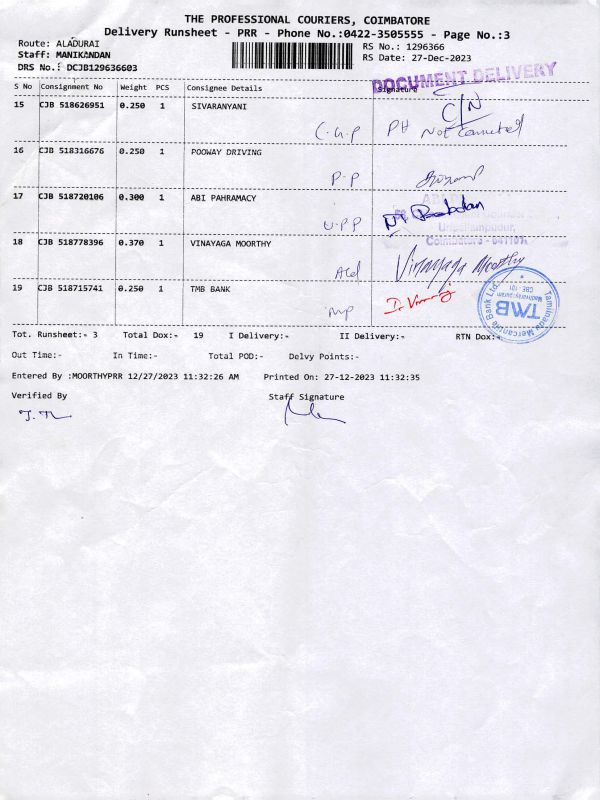 THE PROFESSIONAL COURIERS, COIMBATORE
Delivery Runsheet - PRR - Phone No.:0422-3505555 - Page No.:3
Route: ALADURAI
RS No.: 1296366
Staff: MANIKANDAN
RS Date: 27-Dec-2023
DRS No.: DCJB129636603
DOCUMENT DELIVERY
S No Consignment No Weight PCS Consignee Details Signature
15 CJB 518626951 0.250 1 SIVARANYANI
C/N
C.G.P PH Not Connected
16 CJB 518316676 0.250 1 POOWAY DRIVING
P.P
17 CJB 518720106 0.300 1 ABI PAHRAMACY
U.P.P
Coimbatore - 641107
18 CJB 518778396 0.370 1 VINAYAGA MOORTHY
Ald Vinayaga Moorthy
19 CJB 518715741 0.250 1 TMB BANK
MP
Tamilnadu Mercantile Bank Ltd.
TMB
CBE - 101
Tot. Runsheet:- 3 Total Dox:- 19 I Delivery:- II Delivery:- RTN Dox:-
Out Time:- In Time:- Total POD:- Delvy Points:-
Entered By :MOORTHYPRR 12/27/2023 11:32:26 AM Printed On: 27-12-2023 11:32:35
Verified By Staff Signature